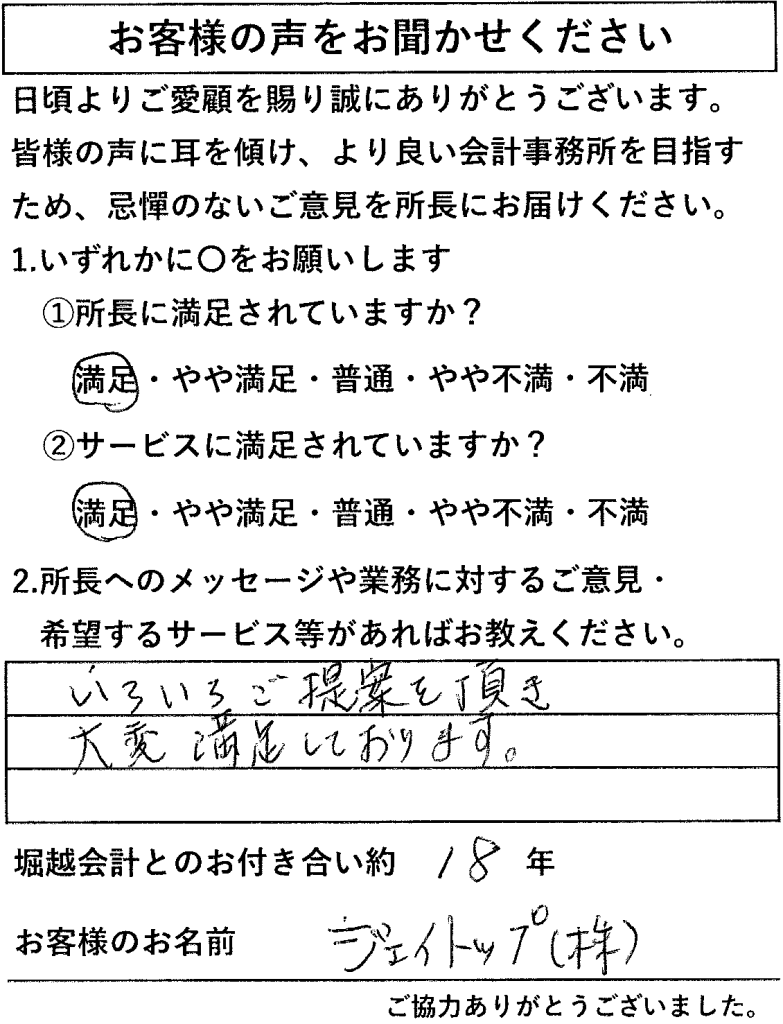 お客様の声をお聞かせください
日頃よりご愛顧を賜り誠にありがとうございます。
皆様の声に耳を傾け、より良い会計事務所を目指す
ため、忌憚のないご意見を所長にお届けください。
1.いずれかに〇をお願いします
①所長に満足されていますか？
満足・やや満足・普通・やや不満・不満
②サービスに満足されていますか？
満足・やや満足・普通・やや不満・不満
2.所長へのメッセージや業務に対するご意見・
希望するサービス等があればお教えください。
いろいろご提案を頂き
大変満足しております。
堀越会計とのお付き合い約 18 年
お客様のお名前 ジェイトップ(株)
ご協力ありがとうございました。